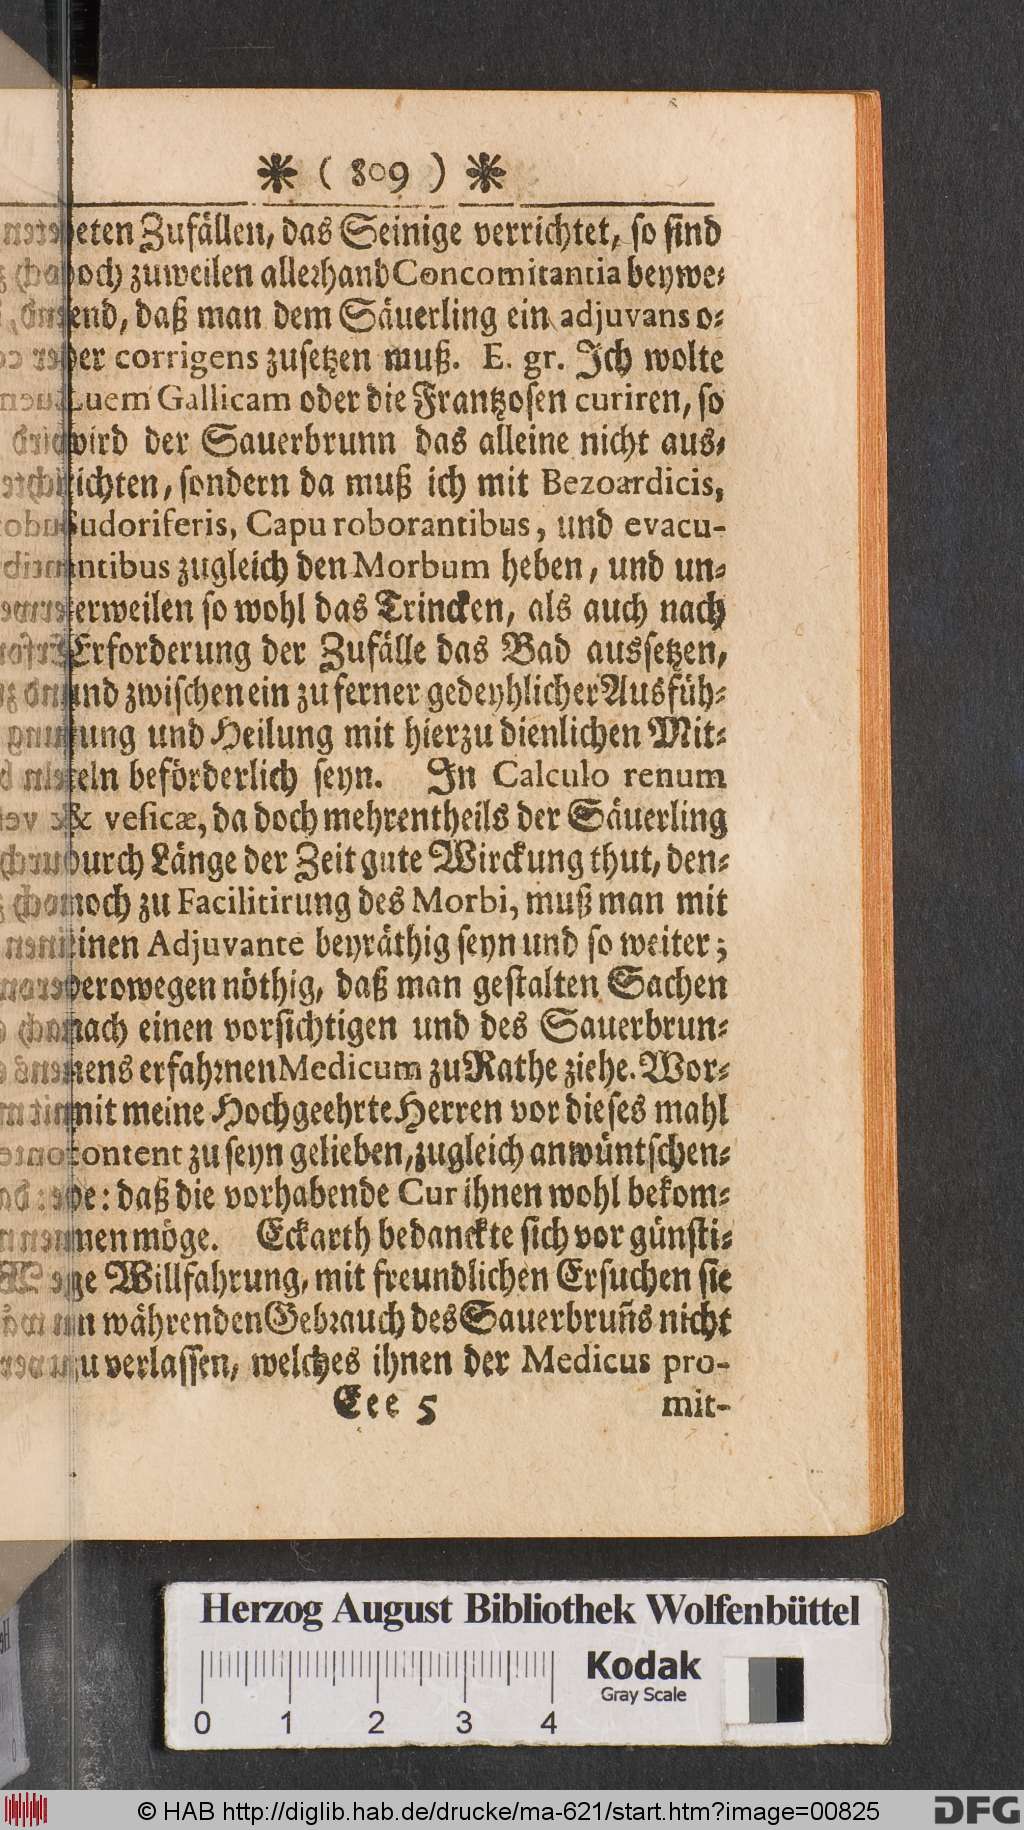 * ( 809 ) *
deten Zufällen, das Seinige verrichtet, so sind
doch zuweilen allerhand Concomitantia beywe⸗
send, daß man dem Säuerling ein adjuvans o⸗
der corrigens zusetzen muß. E. gr. Jch wolte
Luem Gallicam oder die Frantzosen curiren, so
wird der Sauerbrunn das alleine nicht aus⸗
richten, sondern da muß ich mit Bezoardicis,
Sudoriferis, Capu roborantibus, und evacu-
antibus zugleich den Morbum heben, und un⸗
terweilen so wohl das Trincken, als auch nach
Erforderung der Zufälle das Bad aussetzen,
und zwischen ein zu ferner gedeyhlicher Ausfüh⸗
rung und Heilung mit hierzu dienlichen Mit⸗
teln beförderlich seyn. Jn Calculo renum
& vesicæ, da doch mehrentheils der Säuerling
durch Länge der Zeit gute Wirckung thut, den⸗
noch zu Facilitirung des Morbi, muß man mit
einen Adjuvante beyräthig seyn und so weiter;
derowegen nöthig, daß man gestalten Sachen
nach einen vorsichtigen und des Sauerbrun⸗
nens erfahrnen Medicum zu Rathe ziehe. Wor⸗
mit meine Hochgeehrte Herren vor dieses mahl
content zu seyn gelieben, zugleich anwüntschen⸗
de: daß die vorhabende Cur ihnen wohl bekom⸗
men möge. Eckarth bedanckte sich vor günsti⸗
ge Willfahrung, mit freundlichen Ersuchen sie
in währenden Gebrauch des Sauerbrun̄s nicht
zu verlassen, welches ihnen der Medicus pro-
Eee 5 mit-
Herzog August Bibliothek Wolfenbüttel
Kodak
Gray Scale
0 1 2 3 4
© HAB http://diglib.hab.de/drucke/ma-621/start.htm?image=00825
DFG